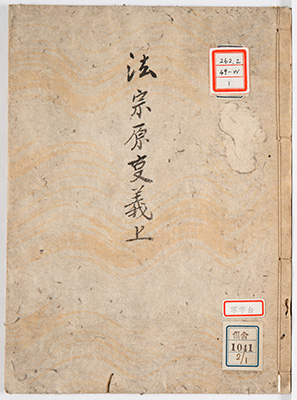 法宗原叓義上
262.2
69-W
1
寫字台
1041
2/1